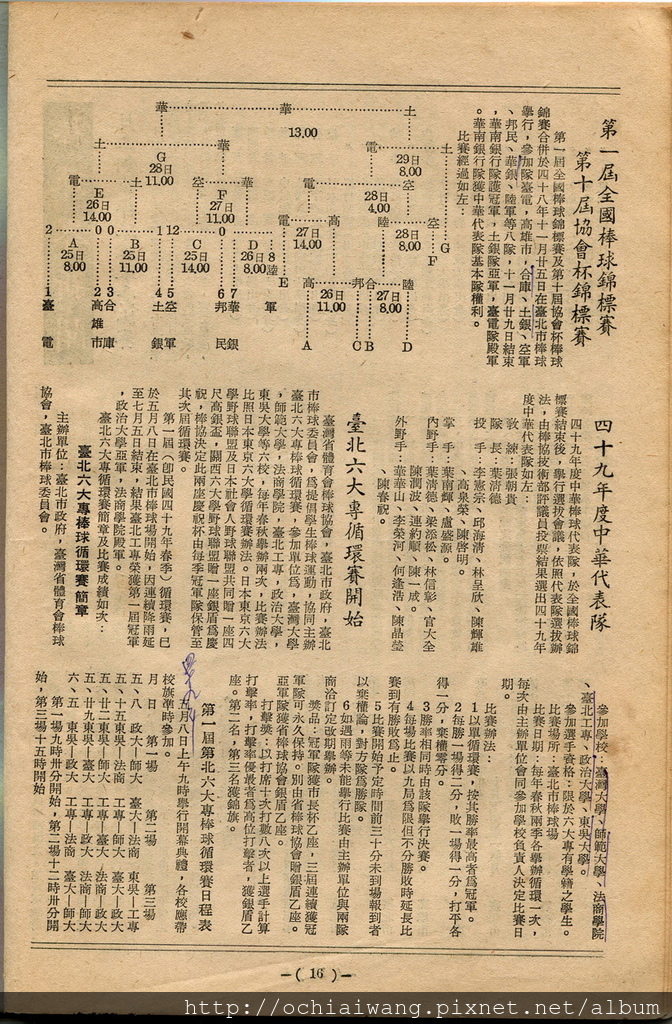 第一屆全國棒球錦標賽
第十屆協會杯錦標賽
第一屆全國棒球錦標賽及第十屆協會杯棒球
錦賽合併於四十八年十一月廿五日在臺北市棒球
舉行，參加隊臺電，高雄市，合庫、土銀、空軍
、邦民、華銀、陸軍等八隊，十一月廿九日結束
，華南銀行隊護冠軍，土銀隊亞軍，臺電隊殿軍
。華南銀行隊獲中華代表隊基本隊權利。
比賽經過如左：
華 華 土
13,00
土 華 電 土
G
28日
11.00
29日
8.00
電 土 空 華 電 空
E
26日
14.00
F
27日
11.00
28日
4.00
電 高 陸 空
27日
14.00
28日
8.00
G
F
2 0 0 1 12 0 8
A
25日
8.00
B
25日
11.00
C
25日
14.00
D
26日
8.00
陸
E
高 邦 合 陸
26日
11.00
27日
8.00
1 2 3 4 5 6 7
臺電
高雄市
合庫
土銀
空軍
邦民
華銀
軍
A C B D
四十九年度中華代表隊
四十九年度中華棒球代表隊，於全國棒球錦
標賽結束後，舉行選拔會議，依照代表隊選拔辦
法，由棒協技術部評議員投票結果選出四十九年
度中華代表隊如左：
敎　練：張朝貴
隊　長：葉清德
投　手：李憲宗、邱海清、林呈欣、陳輝雄
、高泉榮、陳啓明。
掌　手：葉南輝、盧盛源。
內野手：葉清德、梁添松、林信彰、官大全
陳潤波、連約順、陳一成。
外野手：華華山、李榮河、何逢浩、陳晶瑩
、陳春祝。
臺北六大專循環賽開始
臺灣省體育會棒球協會，臺北市政府，臺北
市棒球委員會，爲提倡學生棒球運動，協同主辦
臺北六大專棒球循環賽，參加單位爲，臺灣大學
，師範大學，法商學院，臺北工專，政治大學，
東吳大學等六校，每年春秋舉辦兩次，比賽辦法
比照日本東京六大學循環賽辦法。日本東京六大
學野球聯盟及日本社會人野球聯盟共同贈一座四
尺高銀盃，關西六大學野球聯盟贈一座銀盾爲慶
祝，棒協決定此兩座慶祝杯由每季冠軍隊保管至
其次屆循環賽。
第一屆（卽民國四十九年春季）循環賽，已
於五月八日在臺北市棒球場開始，因連續降雨延
至七月五日結束，結果臺北工專榮獲第一屆冠軍
，政治大學亞軍，法商學院殿軍。
臺北六大專循環賽簡章及比賽成績如次：
臺北六大專棒球循環賽簡章
主辦單位：臺北市政府，臺灣省體育會棒球
協會，臺北市棒球委員會。
參加學校：臺灣大學、師範大學、法商學院
、臺北工專、政治大學、東吳大學。
參加選手資格：限於六大專有學籍之學生。
比賽場所：臺北市棒球場
比賽日期：每年春秋兩季各舉辦循環一次，
每次由主辦單位會同參加學校負責人決定比賽日
期。
比賽辦法：
1 以單循環賽，按其勝率最高者爲冠軍。
2 每勝一場得二分，敗一場得一分，打平各
得一分，棄權零分。
3 勝率相同時由該隊舉行決賽。
4 每場比賽以九局爲限但不分勝敗時延長比
賽到有勝敗爲止。
5 比賽開始予定時間前三十分未到場報到者
以棄權論，對方隊爲勝隊。
6 如遇雨等未能舉行比賽由主辦單位與兩隊
商洽訂定改期舉辦。
獎品：冠軍隊獲市長杯乙座，三屆連續獲冠
軍隊可永久保持。別由省棒球協會贈銀盾乙座。
亞軍隊獲省棒球協會銀盾乙座。
打擊獎：以打席十次打數八次以上選手計算
打擊率，打擊率優最者爲高位打擊者，獲銀盾乙
座。第二名，第三名獲錦旗。
第一屆第北六大專棒球循環賽日程表
五月八日上午九時舉行開幕典禮，各校應帶
校旗準時參加。
月　日　第一場　第二場　第三場
五、八　政大—師大　臺大—法商　東吳—工專
五、十五東吳—法商　工專—師大　臺大—政大
五、廿二東吳—師大　工專—臺大　法商—政大
五、廿九東吳—臺大　工專—政大　法商—師大
六、五　東吳—政大　工專—法商　臺大—師大
第一場九時卅分開始，第二場十二時卅分開
始，第三場十五時開始
—( 16 )—
http://ochiaiwang.pixnet.net/album